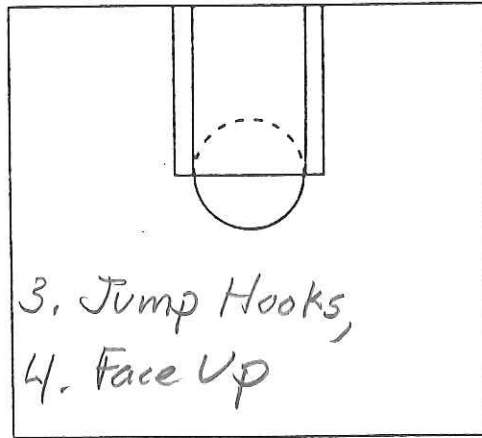 3. Jump Hooks,
4. Face Up